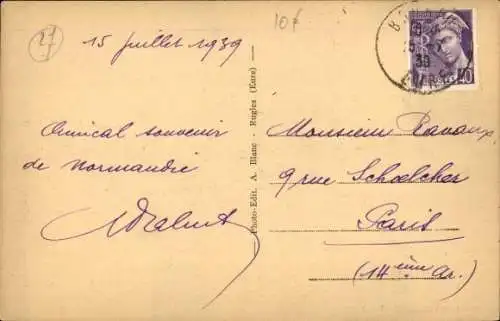 27
10f
15 juillet 1939
Amical souvenir
de Normandie
Photo-Edit. A. Blanc - Rugles (Eure)
Monsieur Ravaux
9 rue Schœlcher
Paris
(14ème ar.)
EURE
40